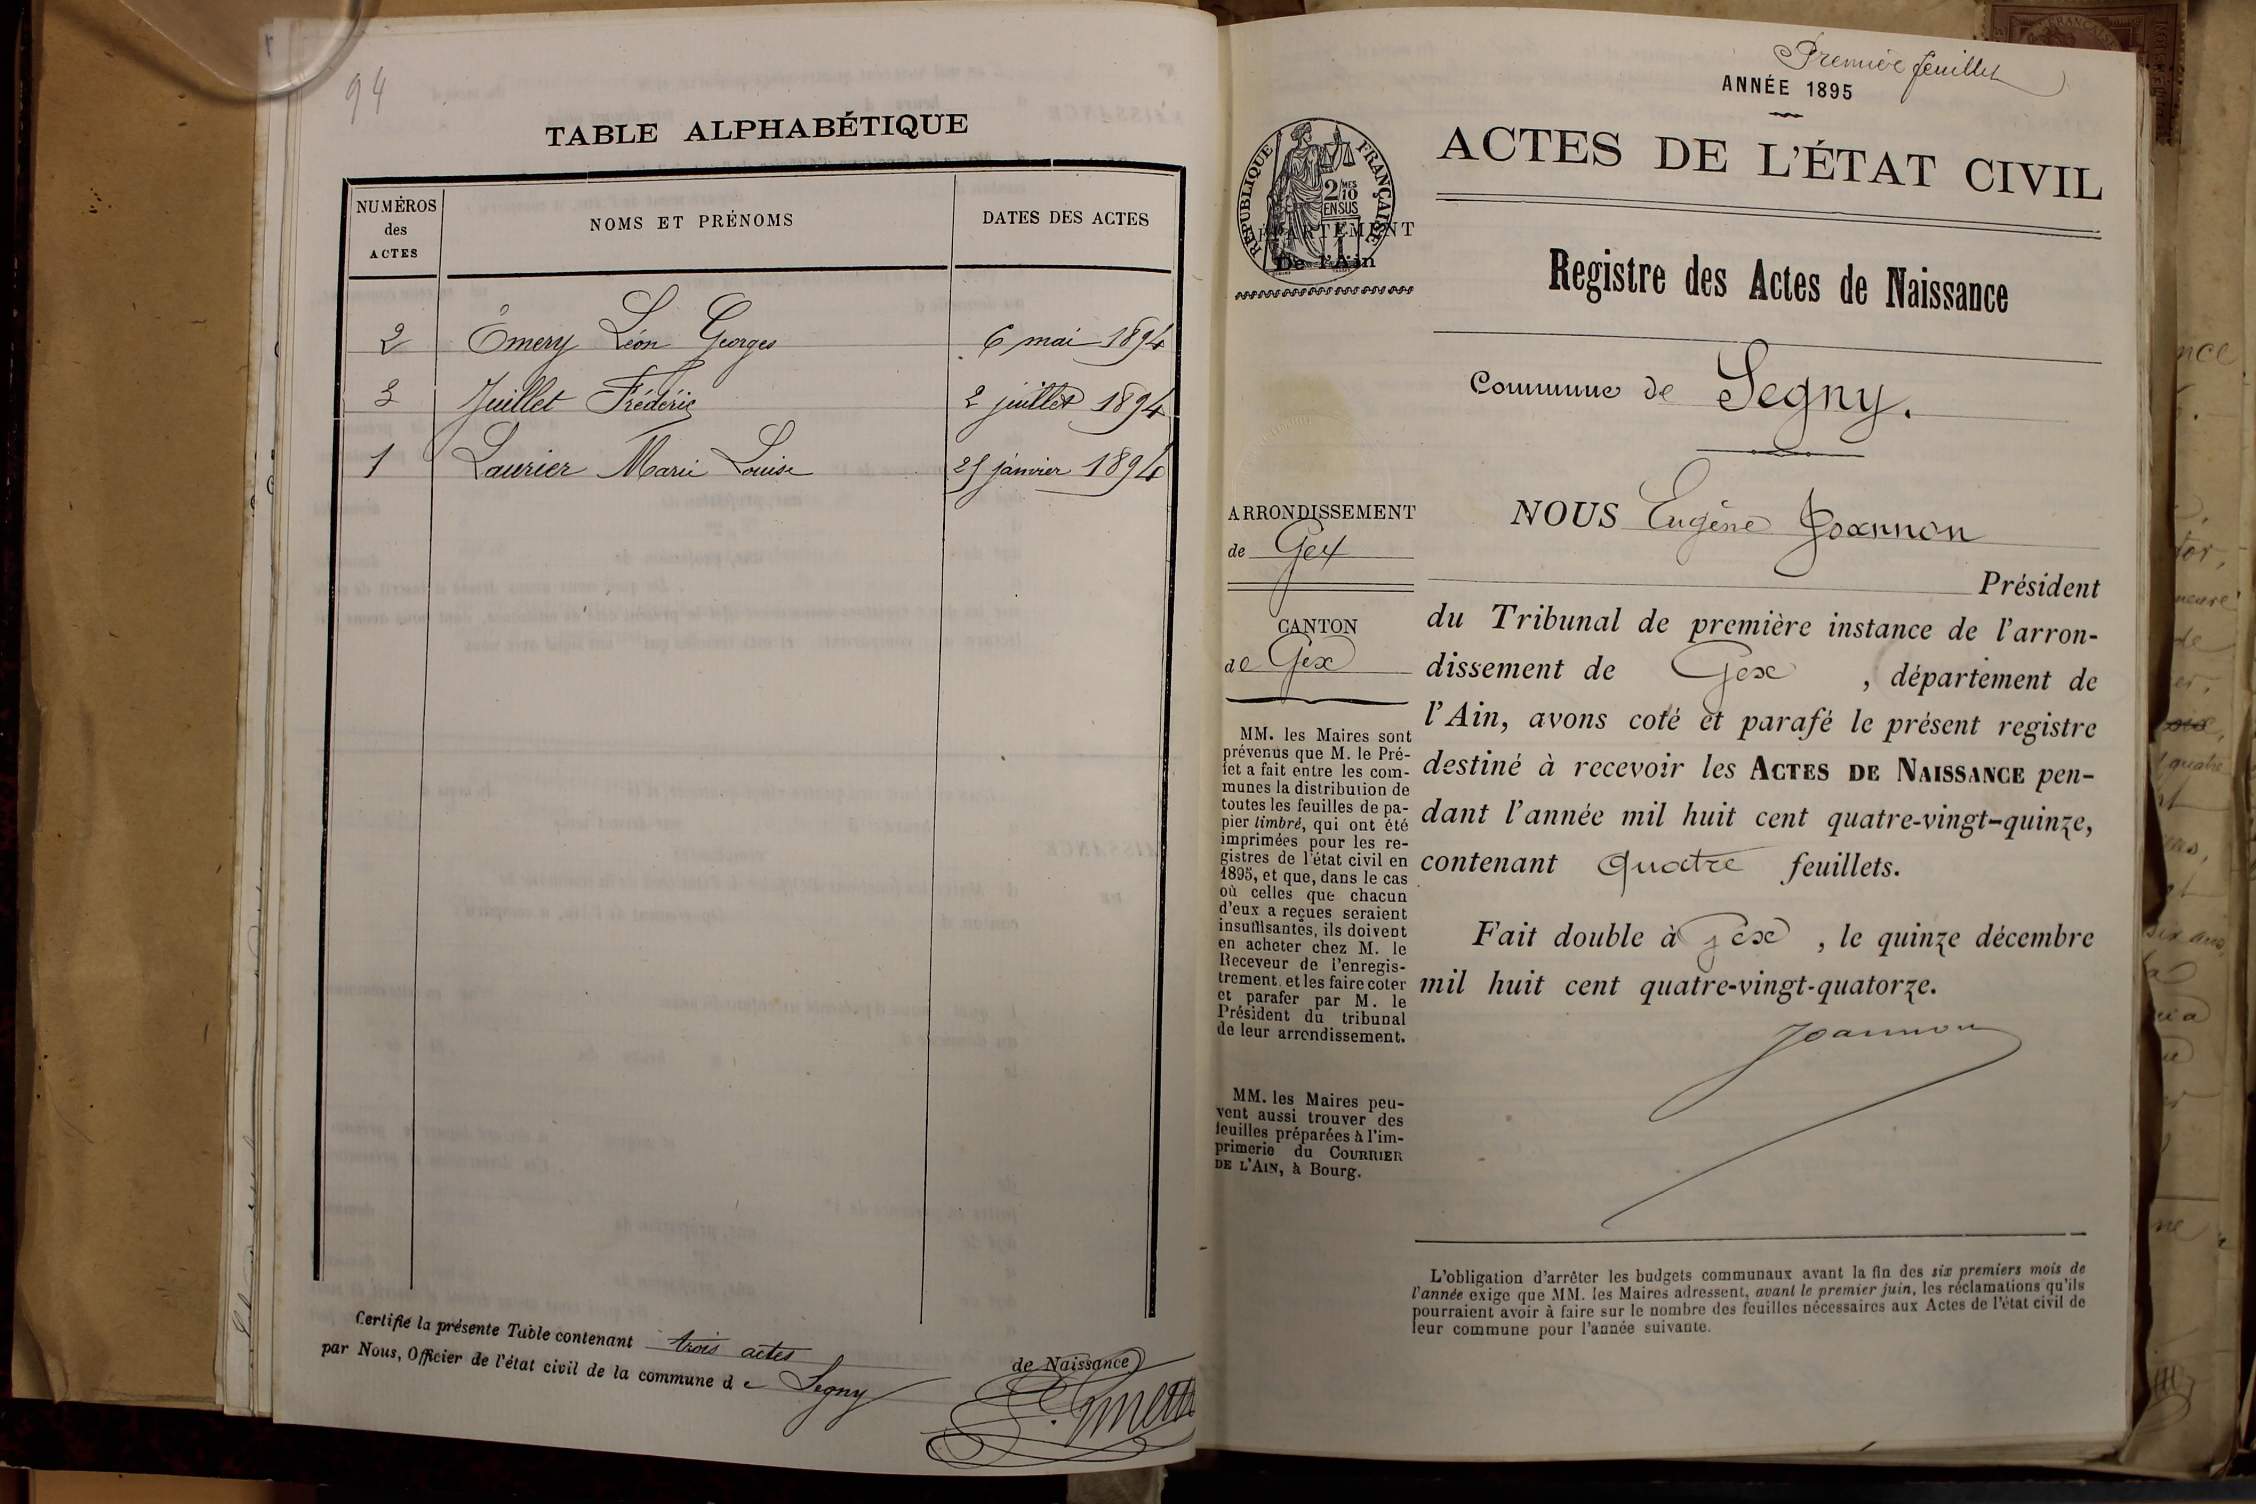 94
TABLE ALPHABÉTIQUE
NUMÉROS
des
ACTES
NOMS ET PRÉNOMS
DATES DES ACTES
2 Émery Léon Georges 6 mai 1894
3 Juillet Frédéric 2 juillet 1894
1 Laurier Marie Louise 25 janvier 1894
Certifié la présente Table contenant trois actes de Naissance
par Nous, Officier de l'état civil de la commune de Segny
Première feuillet
ANNÉE 1895
ACTES DE L'ÉTAT CIVIL
RÉPUBLIQUE FRANÇAISE
2/10 MES
EN SUS
DÉPARTEMENT
De l'Ain
Registre des Actes de Naissance
Commune de Segny.
ARRONDISSEMENT
de Gex
CANTON
de Gex
MM. les Maires sont
prévenus que M. le Pré-
fet a fait entre les com-
munes la distribution de
toutes les feuilles de pa-
pier timbré, qui ont été
imprimées pour les re-
gistres de l'état civil en
1895, et que, dans le cas
où celles que chacun
d'eux a reçues seraient
insuffisantes, ils doivent
en acheter chez M. le
Receveur de l'enregis-
trement, et les faire coter
et parafer par M. le
Président du tribunal
de leur arrondissement.
MM. les Maires peu-
vent aussi trouver des
feuilles préparées à l'im-
primerie du COURRIER
DE L'AIN, à Bourg.
NOUS Eugène Joannon
Président
du Tribunal de première instance de l'arron-
dissement de Gex , département de
l'Ain, avons coté et parafé le présent registre
destiné à recevoir les ACTES DE NAISSANCE pen-
dant l'année mil huit cent quatre-vingt-quinze,
contenant quatre feuillets.
Fait double à Gex , le quinze décembre
mil huit cent quatre-vingt-quatorze.
Joannon
L'obligation d'arrêter les budgets communaux avant la fin des six premiers mois de
l'année exige que MM. les Maires adressent, avant le premier juin, les réclamations qu'ils
pourraient avoir à faire sur le nombre des feuilles nécessaires aux Actes de l'état civil de
leur commune pour l'année suivante.